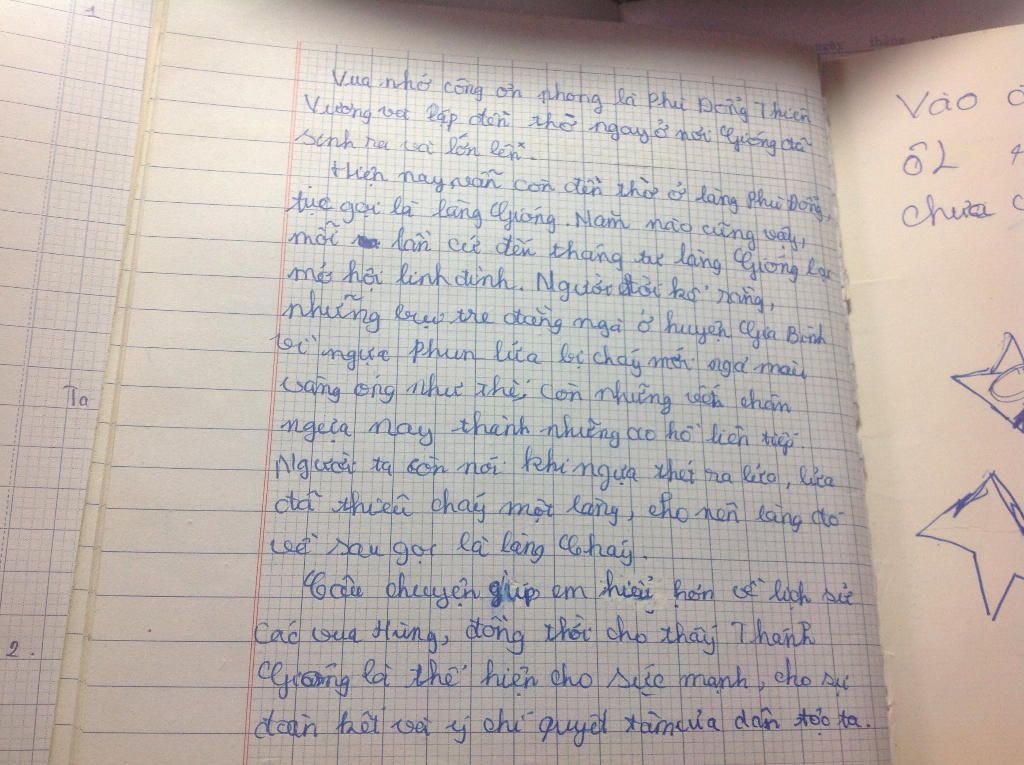 1
Vua nhớ công ơn phong là Phù Đổng Thiên
Vương và lập đền thờ ngay ở nơi Gióng đã
sinh ra và lớn lên.
Hiện nay vẫn còn đền thờ ở làng Phù Đổng,
tục gọi là làng Gióng. Năm nào cũng vậy,
mỗi lần cứ đến tháng tư làng Gióng lại
mở hội linh đình. Người đời kể rằng,
những bụi tre đằng ngà ở huyện Gia Bình
vì ngựa phun lửa bị cháy mới ngả màu
vàng óng như thế, còn những vết chân
ngựa nay thành những ao hồ liên tiếp.
Người ta còn nói khi ngựa thét ra lửa, lửa
đã thiêu cháy một làng, cho nên làng đó
về sau gọi là làng Cháy.
Câu chuyện giúp em hiểu hơn về lịch sử
các vua Hùng, đồng thời cho thấy Thánh
Gióng là thể hiện cho sức mạnh, cho sự
đoàn kết và ý chí quyết tâm của dân tộc ta.
Ta
2.
Vào
ôl
chưa